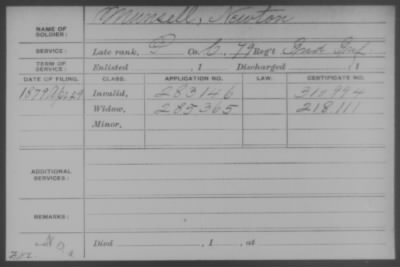 NAME OF SOLDIER: Munsell, Newton
SERVICE: Late rank, P Co. C, 79 Reg't Ind Inf
TERM OF SERVICE: Enlisted , 1 Discharged , 1
DATE OF FILING. CLASS. APPLICATION NO. LAW. CERTIFICATE NO.
1879 Apr 29 Invalid, 283146 312994
Widow, 285365 218111
Minor,
ADDITIONAL SERVICES:
REMARKS:
Died , 1 , at